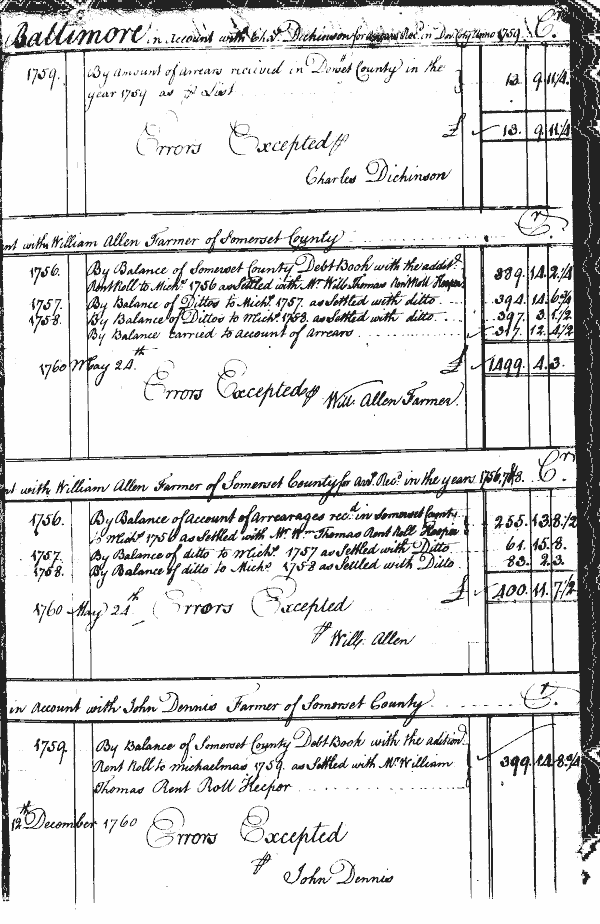 Baltimore in Account with Chas. Dickinson for Arrears Recd. in Dort. Coty Anno 1759. Cr.
1759. By Amount of arrears received in Dorset County in the 13. 9. 11¼.
year 1759 as ⅌ List
£ 13. 9. 11¼
Errors Excepted ⅌
Charles Dickinson
nt with William Allen Farmer of Somerset County Cr.
1756. By Balance of Somerset County Debt Book with the addit.
Rent Roll to Michs. 1756 as Settled with Mr. Willm. Thomas Rent Roll Keeper 389. 14. 2¼
1757. By Balance of Dittos to Michs. 1757. as Settled with ditto 394. 14. 6¾
1758. By Balance of Dittos to Michs. 1758. as Settled with ditto 397. 3. 1½
By Balance carried to account of Arrears 317. 12. 4½
1760 May 24th £ 1499. 4. 3.
Errors Excepted ⅌ Will. Allen Farmer.
nt with William Allen Farmer of Somerset County for Arrs. Recd. in the years 1756,7&8. Cr.
1756. By Balance of Account of Arrearages recd. in Somerset County
to Michs. 1756 as Settled with Mr. Wm. Thomas Rent Roll Keeper 255. 13. 8½
1757. By Balance of ditto to Michs. 1757 as Settled with Ditto 61. 15. 8.
1758. By Balance of ditto to Michs. 1758 as Settled with Ditto 83. 2. 3.
£ 400. 11. 7½
1760 May 24th Errors Excepted
⅌ Will. Allen
in Account with John Dennis Farmer of Somerset County Cr.
1759. By Balance of Somerset County Debt Book with the adition.
Rent Roll to michaelmas 1759. as Settled with Mr. William 399. 14. 8¾
Thomas Rent Roll Keepor
12th December 1760 Errors Excepted
⅌ John Dennis